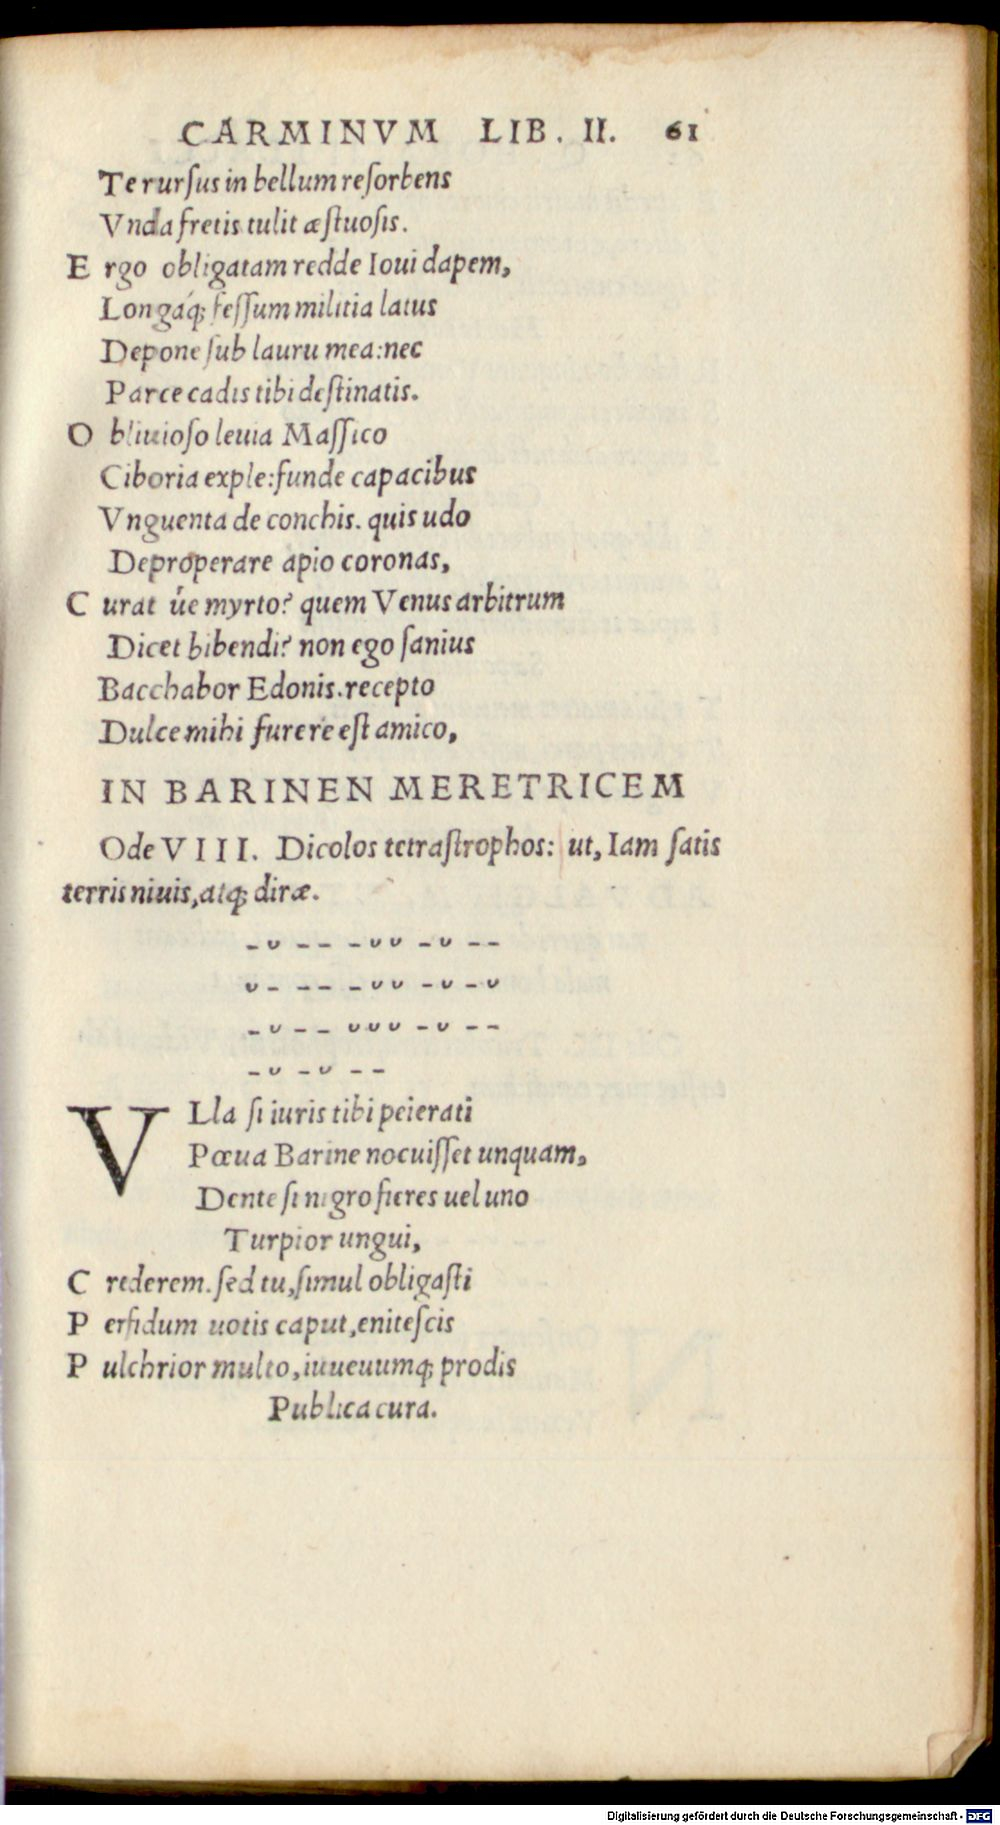 CARMINVM LIB. II. 61
Te rurſus in bellum reſorbens
Vnda fretis tulit æſtuoſis.
E rgo obligatam redde Ioui dapem,
Longaq́; feſſum militia latus
Depone ſub lauru mea:nec
Parce cadis tibi deſtinatis.
O bliuioſo leuia Maſſico
Ciboria exple:funde capacibus
Vnguenta de conchis. quis udo
Deproperare apio coronas,
C urat úe myrto? quem Venus arbitrum
Dicet bibendi? non ego ſanius
Bacchabor Edonis.recepto
Dulce mihi furere eſt amico,
IN BARINEN MERETRICEM
Ode VIII. Dicolos tetraſtrophos: ut, Iam ſatis
terris niuis,atq; diræ.
– ᴗ – – – ᴗ ᴗ – ᴗ – –
ᴗ – – – – ᴗ ᴗ – ᴗ – ᴗ
– ᴗ – – ᴗ ᴗ ᴗ – ᴗ – –
– ᴗ – ᴗ – –
VLla ſi iuris tibi peierati
Pœua Barine nocuiſſet unquam,
Dente ſi nigro fieres uel uno
Turpior ungui,
C rederem.ſed tu,ſimul obligaſti
P erfidum uotis caput,eniteſcis
P ulchrior multo,iuueuumq; prodis
Publica cura.
Digitalisierung gefördert durch die Deutsche Forschungsgemeinschaft - DFG